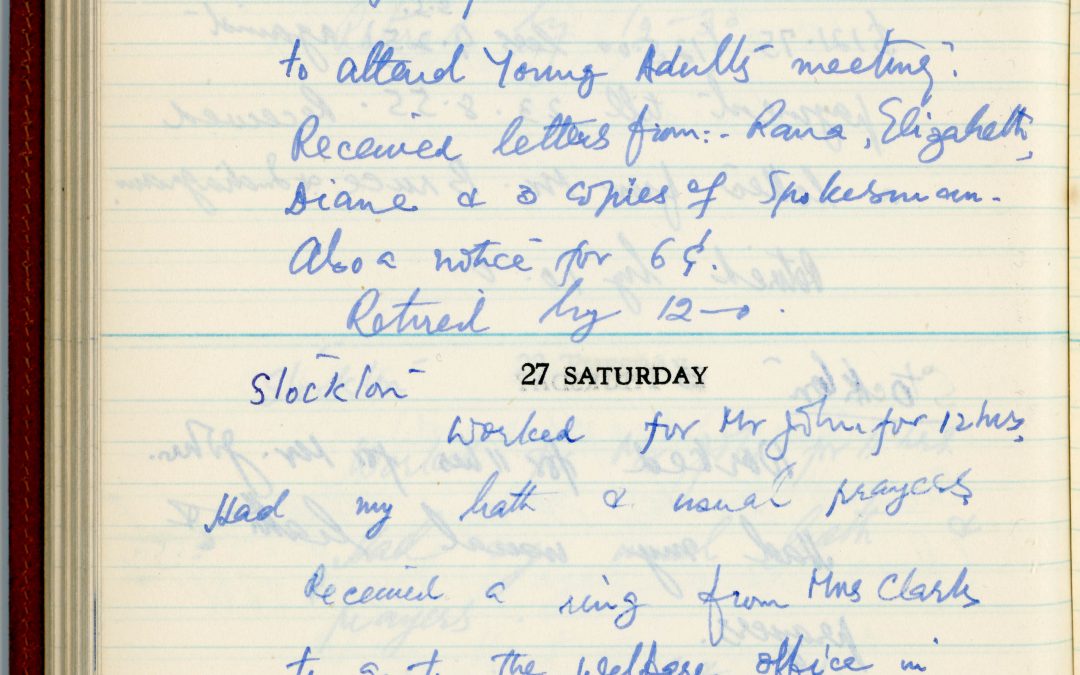 to attend Young Adults meeting.
Received letters from:- Rana, Elizabeth,
Diane & 3 copies of Spokesman.
Also a notice for 6¢.
Retired by 12-0.
27 SATURDAY
Stockton
Worked for Mr John for 12 hrs.
Had my bath & usual prayers
Received a ring from Mrs Clark
to the Welfare office in